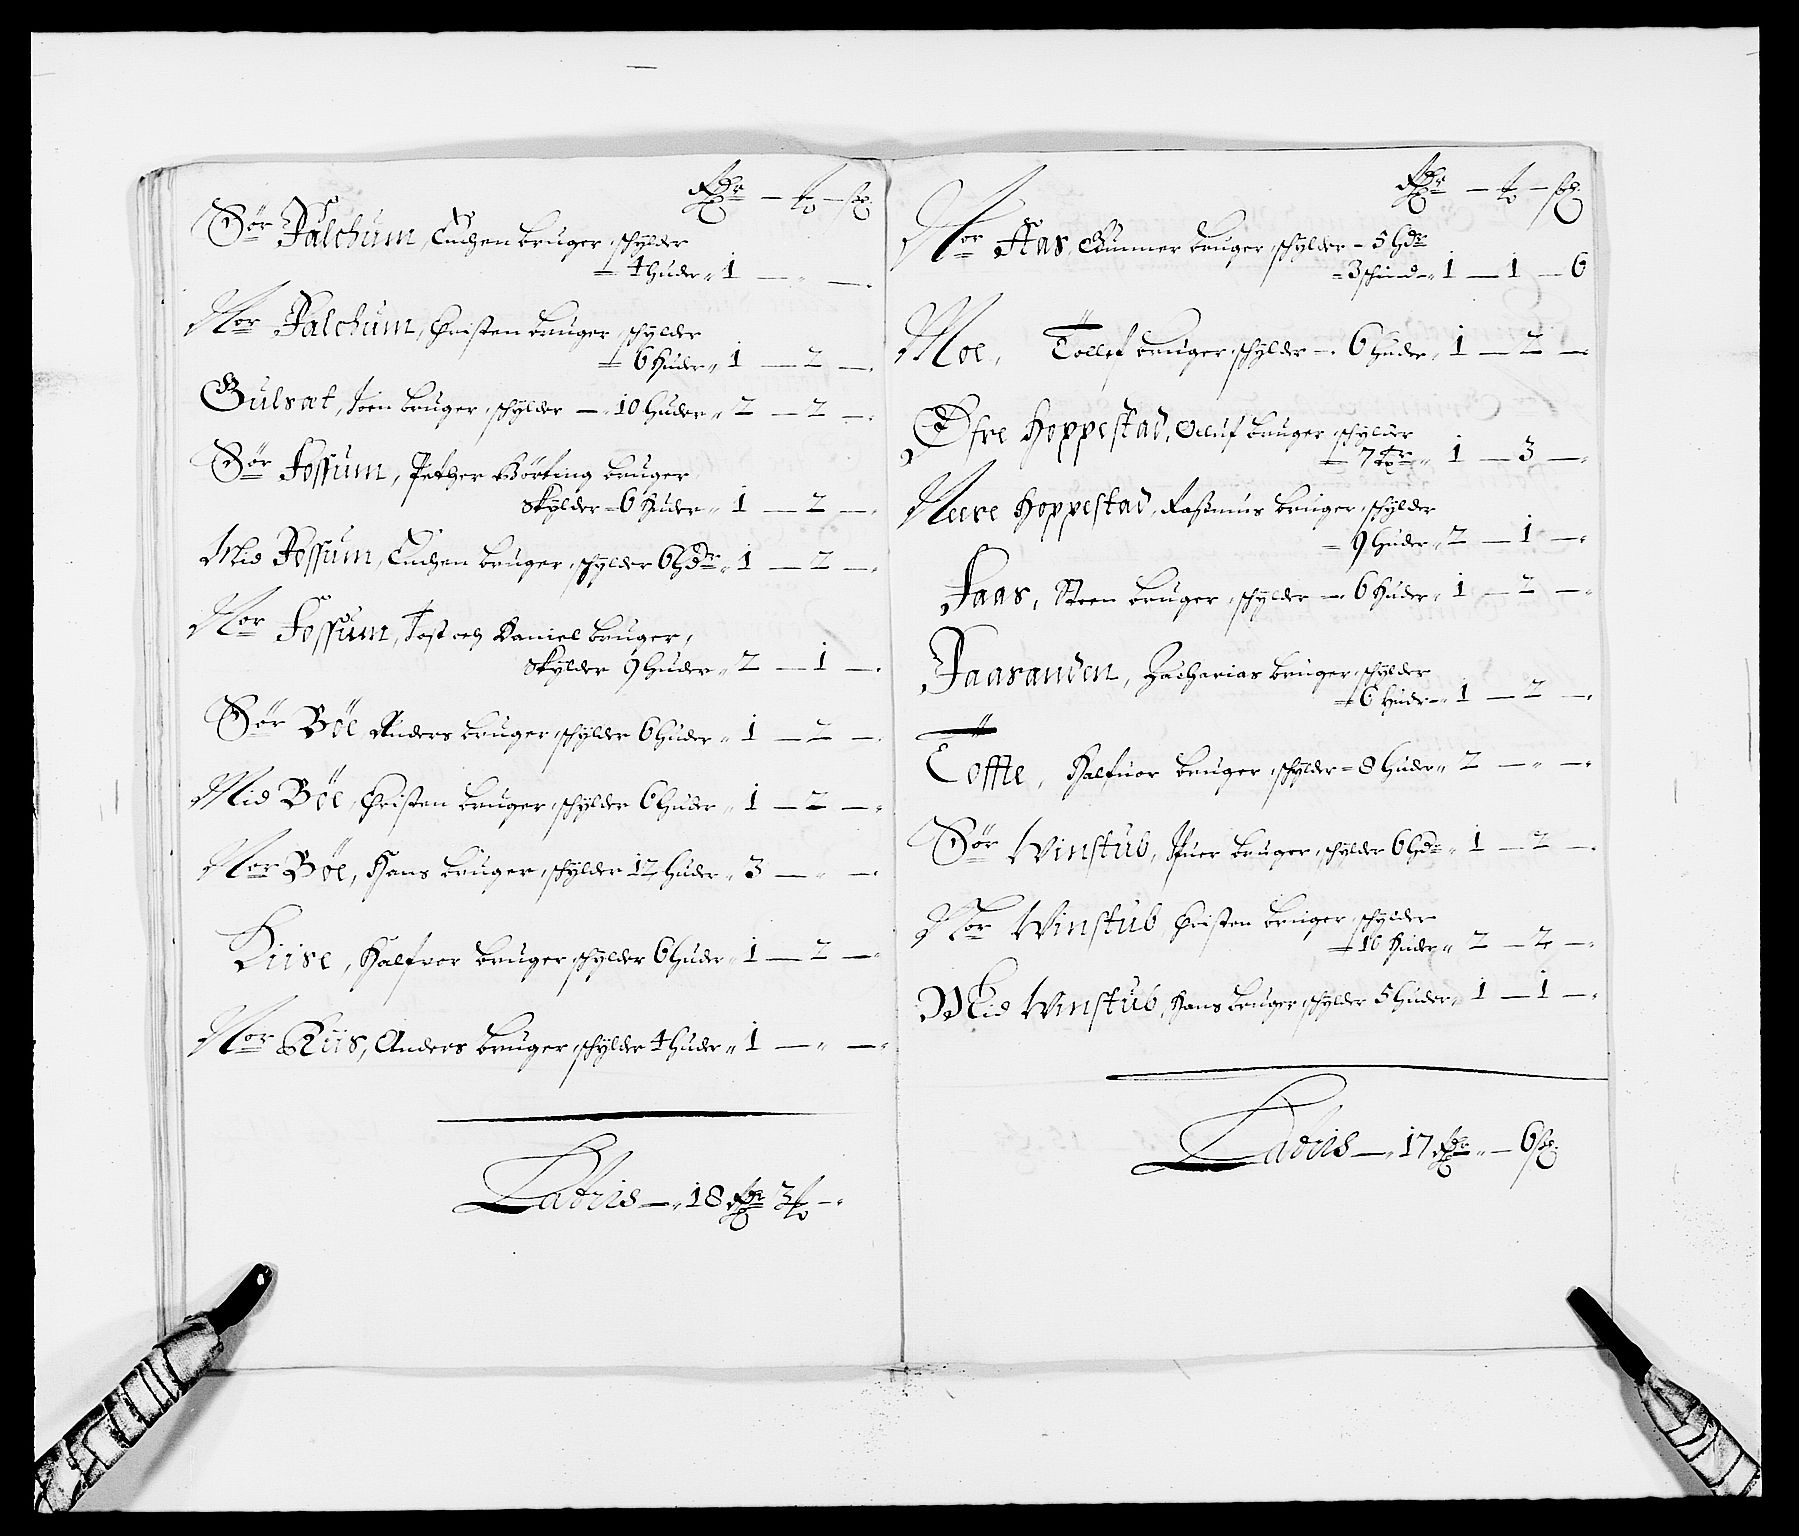 Rdr — ß — sk.
Sør Falchum, Tuchen bruger, schÿlder
4 huder „ 1 — „ — „
Nor Falchum, Christen bruger, schÿlder
6 Huder „ 1 — 2 — „
Gulsæt, Joen bruger, schÿlder — 10 huder „ 2 — 2 — „
Sør Fossum, Pether Børting bruger
Skÿlder — 6 Huder „ 1 — 2 — „
Mid Fossum, Tuchen bruger, schÿlder 6 hdr „ 1 — 2 — „
Nor Fossum, Jost och Daniel bruger,
Skÿlder 9 huder „ 2 — 1 — „
Sør Bøe Anders bruger, schÿlder 6 huder „ 1 — 2 — „
Mid Bøe, Christen bruger, schÿlder 6 huder „ 1 — 2 — „
Nor Bøe, Hans bruger, schÿlder 12 huder „ 3 — „ — „
Kiise, Halfvor bruger, schÿlder 6 huder „ 1 — 2 — „
Nor Kiis, Anders bruger, schÿlder 4 huder „ 1 — „ — „
Latris — „ 18 Rdr 3 ß — „
Rdr — ß — sk.
Nor Aas, Gunner bruger, schÿlder — 5 hdr
3 schind — „ 1 — 1 — 6
Moe, Tollef bruger, schÿlder — 6 huder „ 1 — 2 — „
Øfre Hoppestad, Oluf bruger, schÿlder
7 „ 1 — 3 — „
Neere Hoppestad, Rasmus bruger, schÿlder
9 huder „ 2 — 1 — „
Faas, Steen bruger, schÿlder — 6 Huder „ 1 — 2 — „
Faasanden, Zacharias bruger, schÿlder
6 Huder — „ 1 — 2 — „
Töffte, Halfuor bruger, schÿlder — 8 huder „ 2 — „ — „
Sør Winstub, Ifuer bruger, schÿlder 6 hdr „ 1 — 2 — „
Nor Winstub, Christen bruger, schÿlder
10 Huder „ 2 — 2 — „
Mid Winstub, Hans bruger, schÿlder 5 huder „ 1 — 1 — „
Latris — „ 17 Rdr „ — 6 sk.